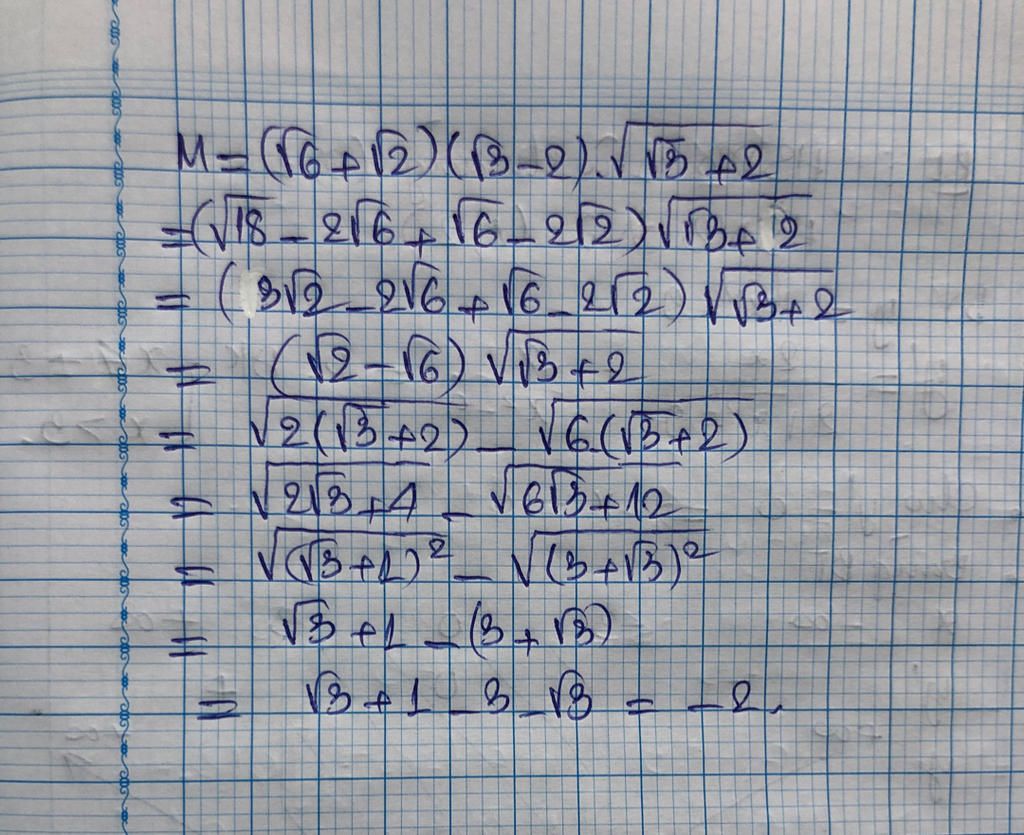 M = (√6 + √2)(√3 − 2).√(√3 + 2)
= (√18 − 2√6 + √6 − 2√2)√(√3 + 2)
= (3√2 − 2√6 + √6 − 2√2) √(√3 + 2)
= (√2 − √6) √(√3 + 2)
= √(2(√3 + 2)) − √(6.(√3 + 2))
= √(2√3 + 4) − √(6√3 + 12)
= √((√3 + 1)²) − √((3 + √3)²)
= √3 + 1 − (3 + √3)
= √3 + 1 − 3 − √3 = − 2.